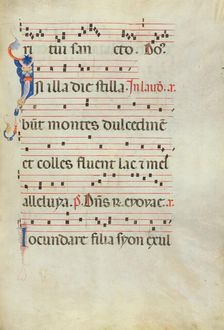 ri tui san cto. Do.
In illa die stilla. In laud. a.
būt montes dulcedinē
et colles fluent lac ⁊ mel
alleluya. p. Dn̄s R. evovae. a.
Iocundare filia syon exul